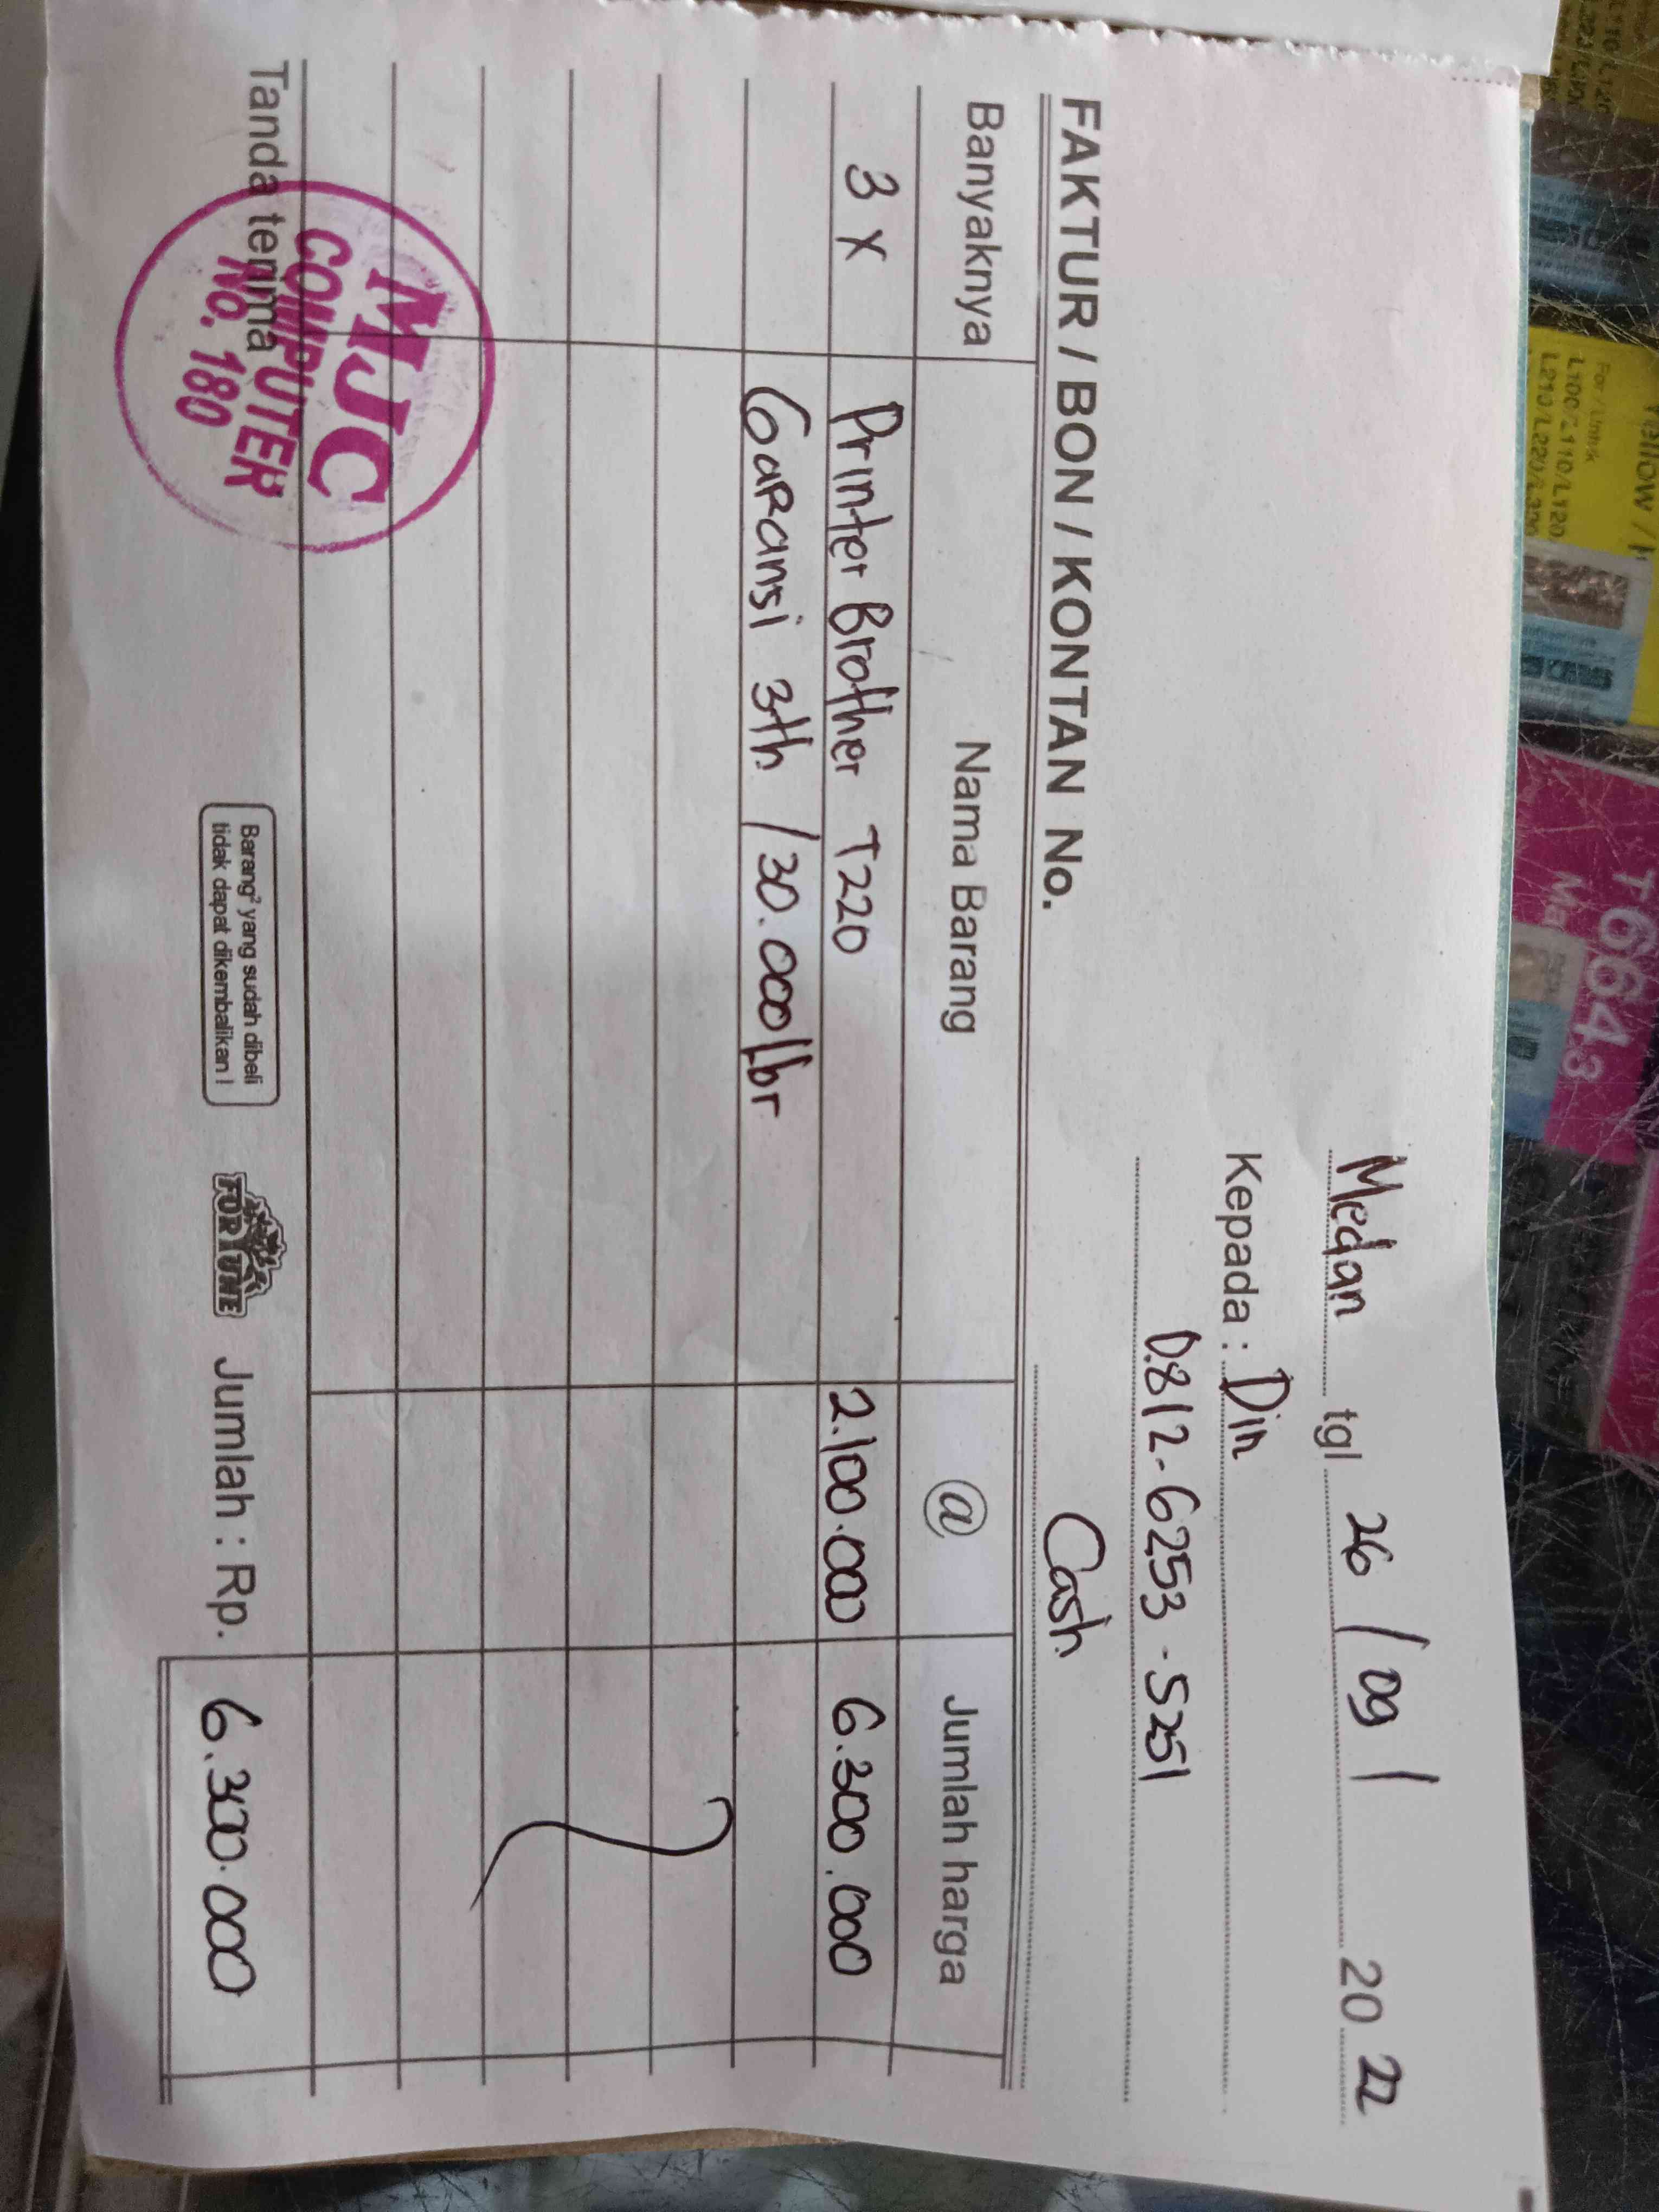 Medan tgl 26 / 09 / 20 22
Kepada : Din
0812-6253-5251
FAKTUR / BON / KONTAN No. Cash
Banyaknya Nama Barang @ Jumlah harga
3 x Printer Brother T220 2.100.000 6.300.000
Garansi 3th / 30.000 lbr
Tanda terima
MJC
COMPUTER
No. 180
Barang² yang sudah dibeli
tidak dapat dikembalikan !
FORTUNE
Jumlah : Rp. 6.300.000
Yellow /
For / Untuk
L100/L110/L120
L210/L220/L300
T6643